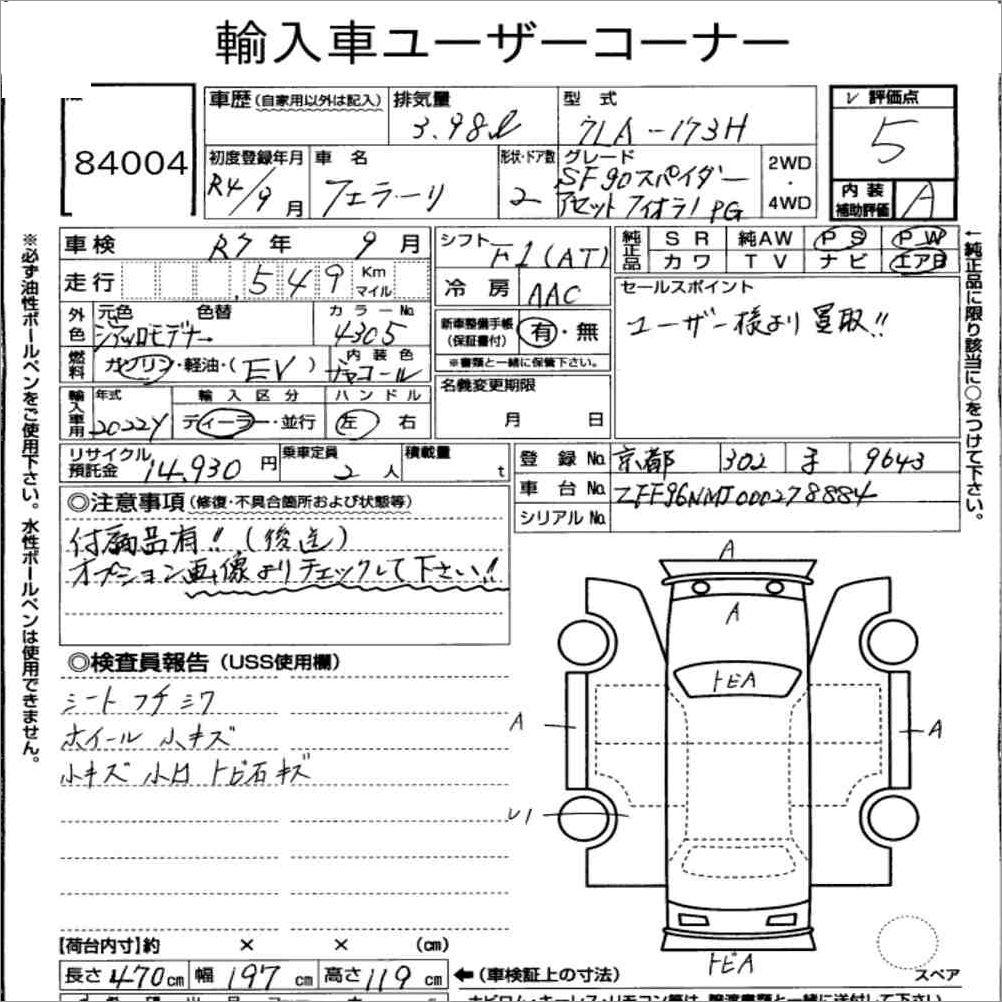 輸入車ユーザーコーナー
84004
車歴(自家用以外は記入)
排気量 3.98ℓ
型式 7LA-173H
レ 評価点 5
内装補助評価 A
初度登録年月 R4/9月
車名 フェラーリ
形状・ドア数 2
グレード SF90スパイダー
アセットフィオラノPG
2WD・4WD
車検 R7年 9月
走行 549 Km マイル
外色 元色 色替 カラーNo.
ジアッロモデナー 4305
燃料 ガソリン・軽油・(EV) 内装色 チャコール
輸入車用 年式 2022Y 輸入区分 ディーラー・並行 ハンドル 左 右
リサイクル預託金 14,930円 乗車定員 2人 積載量 t
シフト F1(AT)
冷房 AAC
新車整備手帳(保証書付) 有・無
※書類と一緒に保管下さい。
名義変更期限
月 日
純正品 SR 純AW PS PW
カワ TV ナビ エアB
セールスポイント
ユーザー様より買取!!
登録No. 京都 302 9643
車台No. ZFF96NMJ000278884
シリアルNo.
◎注意事項(修復・不具合箇所および状態等)
付属品有!!(後送)
オプション画像よりチェックして下さい!!
◎検査員報告(USS使用欄)
シートフチシワ
ホイール小キズ
小キズ 小凹 トビ石キズ
A
A
トビA
A
A
トビA
スペア
【荷台内寸】約 × × (cm)
長さ470cm 幅197cm 高さ119cm
←(車検証上の寸法)
※必ず油性ボールペンをご使用下さい。水性ボールペンは使用できません。
←純正品に限り該当に○をつけて下さい。